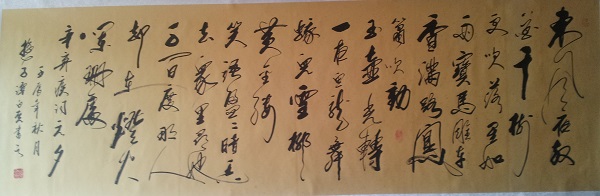 東風夜放
花千樹
更吹落星如
雨寶馬雕車
香滿路鳳
簫吹動
玉壺光轉
一夜魚龍舞
蛾兒雪柳
黃金縷
笑語盈盈暗香
去眾里尋他
千百度那人
却在燈火
闌珊處
辛弃疾詞元夕
辰年秋月